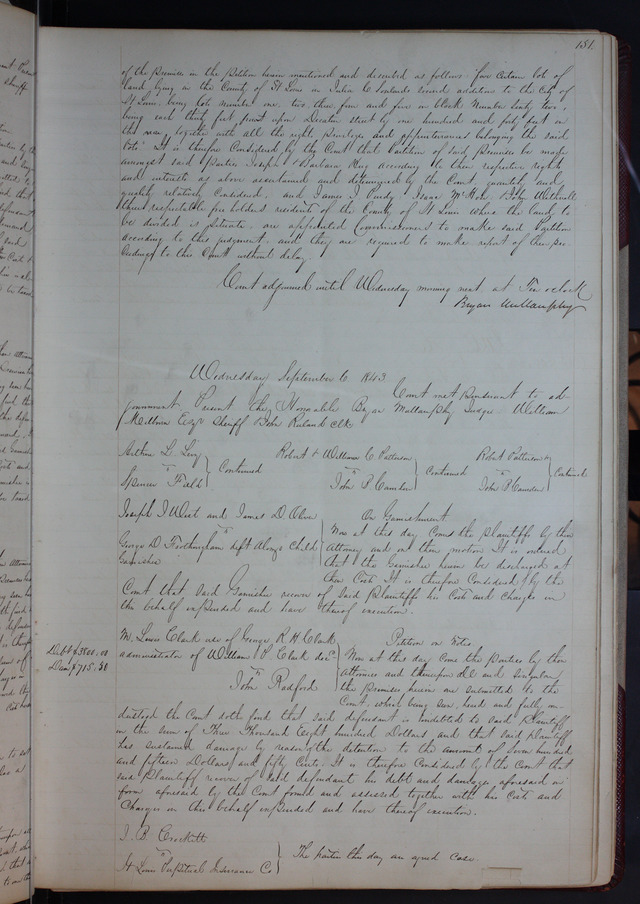 181.
of the Premises in the Petition herein mentioned and described as follows. five certain lots of
land lying in the County of St Louis in Julia C Soulards second addition to the City of
St Louis being lots number one, two, three, four and five in block Number Sixty two,
being each thirty feet front upon Decatur street by one hundred and forty feet in
the rear, together with all the right privileges and appurtenances belonging the said
lots. It is therefore Considered by the Court that Partition of said premises be made
amongst said parties Joseph & Barbara according to their respective rights
and interests as above ascertained and determined by the Court quantity and
quality relatively Considered, and James S. Isaac John
three respectable free holders residents of the County of St Louis where the land to
be divided is situate, are appointed Commissioners to make said Partition
according to this judgment. and they are required to make report of their pro-
ceedings to this Court without delay.
Court adjourned until Wednesday morning next at Ten o'clock
Bryan Mullanphy
Wednesday September 6 1843
Court met pursuant to ad-
journment. Present the Honorable Bryan Mullanphy Judge. William
Milburn Esqr Sheriff John Ruland clk
Arthur L. Levy
vs
Spencer Field
Continued
Robert & William C Patterson
vs
John P Camden
Continued
Robert Patterson &
vs
John P Camden
Continued
Joseph S West and James D. Oliver
vs
George D. Frothingham deft Alonzo Child
Garnishee
On Garnishment.
Now at this day Comes the plaintiffs by their
Attorney and on their motion It is ordered
that the Garnishee herein be discharged at
their Cost. It is therefore Considered by the
Court that Said Garnishee recover of Said Plaintiff his Costs and Charges in
this behalf expended and have thereof execution.
Debt $3800.00
Dam. $715.50
M. Lewis Clark use of George R. H. Clark
administrator of William P. Clark decd
vs
John Radford
Petition on Notes
Now at this day come the parties by their
Attornies and thereupon all and singular
the premises herein are submitted to the
Court. which being seen, heard and fully un-
derstood the Court doth find that said defendant is indebted to said plaintiff
in the sum of Three Thousand Eight hundred Dollars and that Said plaintiff
has sustained damage by reason of the detention to the amount of Seven hundred
and fifteen Dollars and fifty Cents. It is therefore Considered by the Court that
said Plaintiff recover of said defendant his debt and damages aforesaid in
form aforesaid by the Court found and assessed together with his Costs and
Charges in this behalf expended and have thereof execution.
J. B. Crockett
vs
St Louis Perpetual Insurance Co
The parties this day an agreed case.